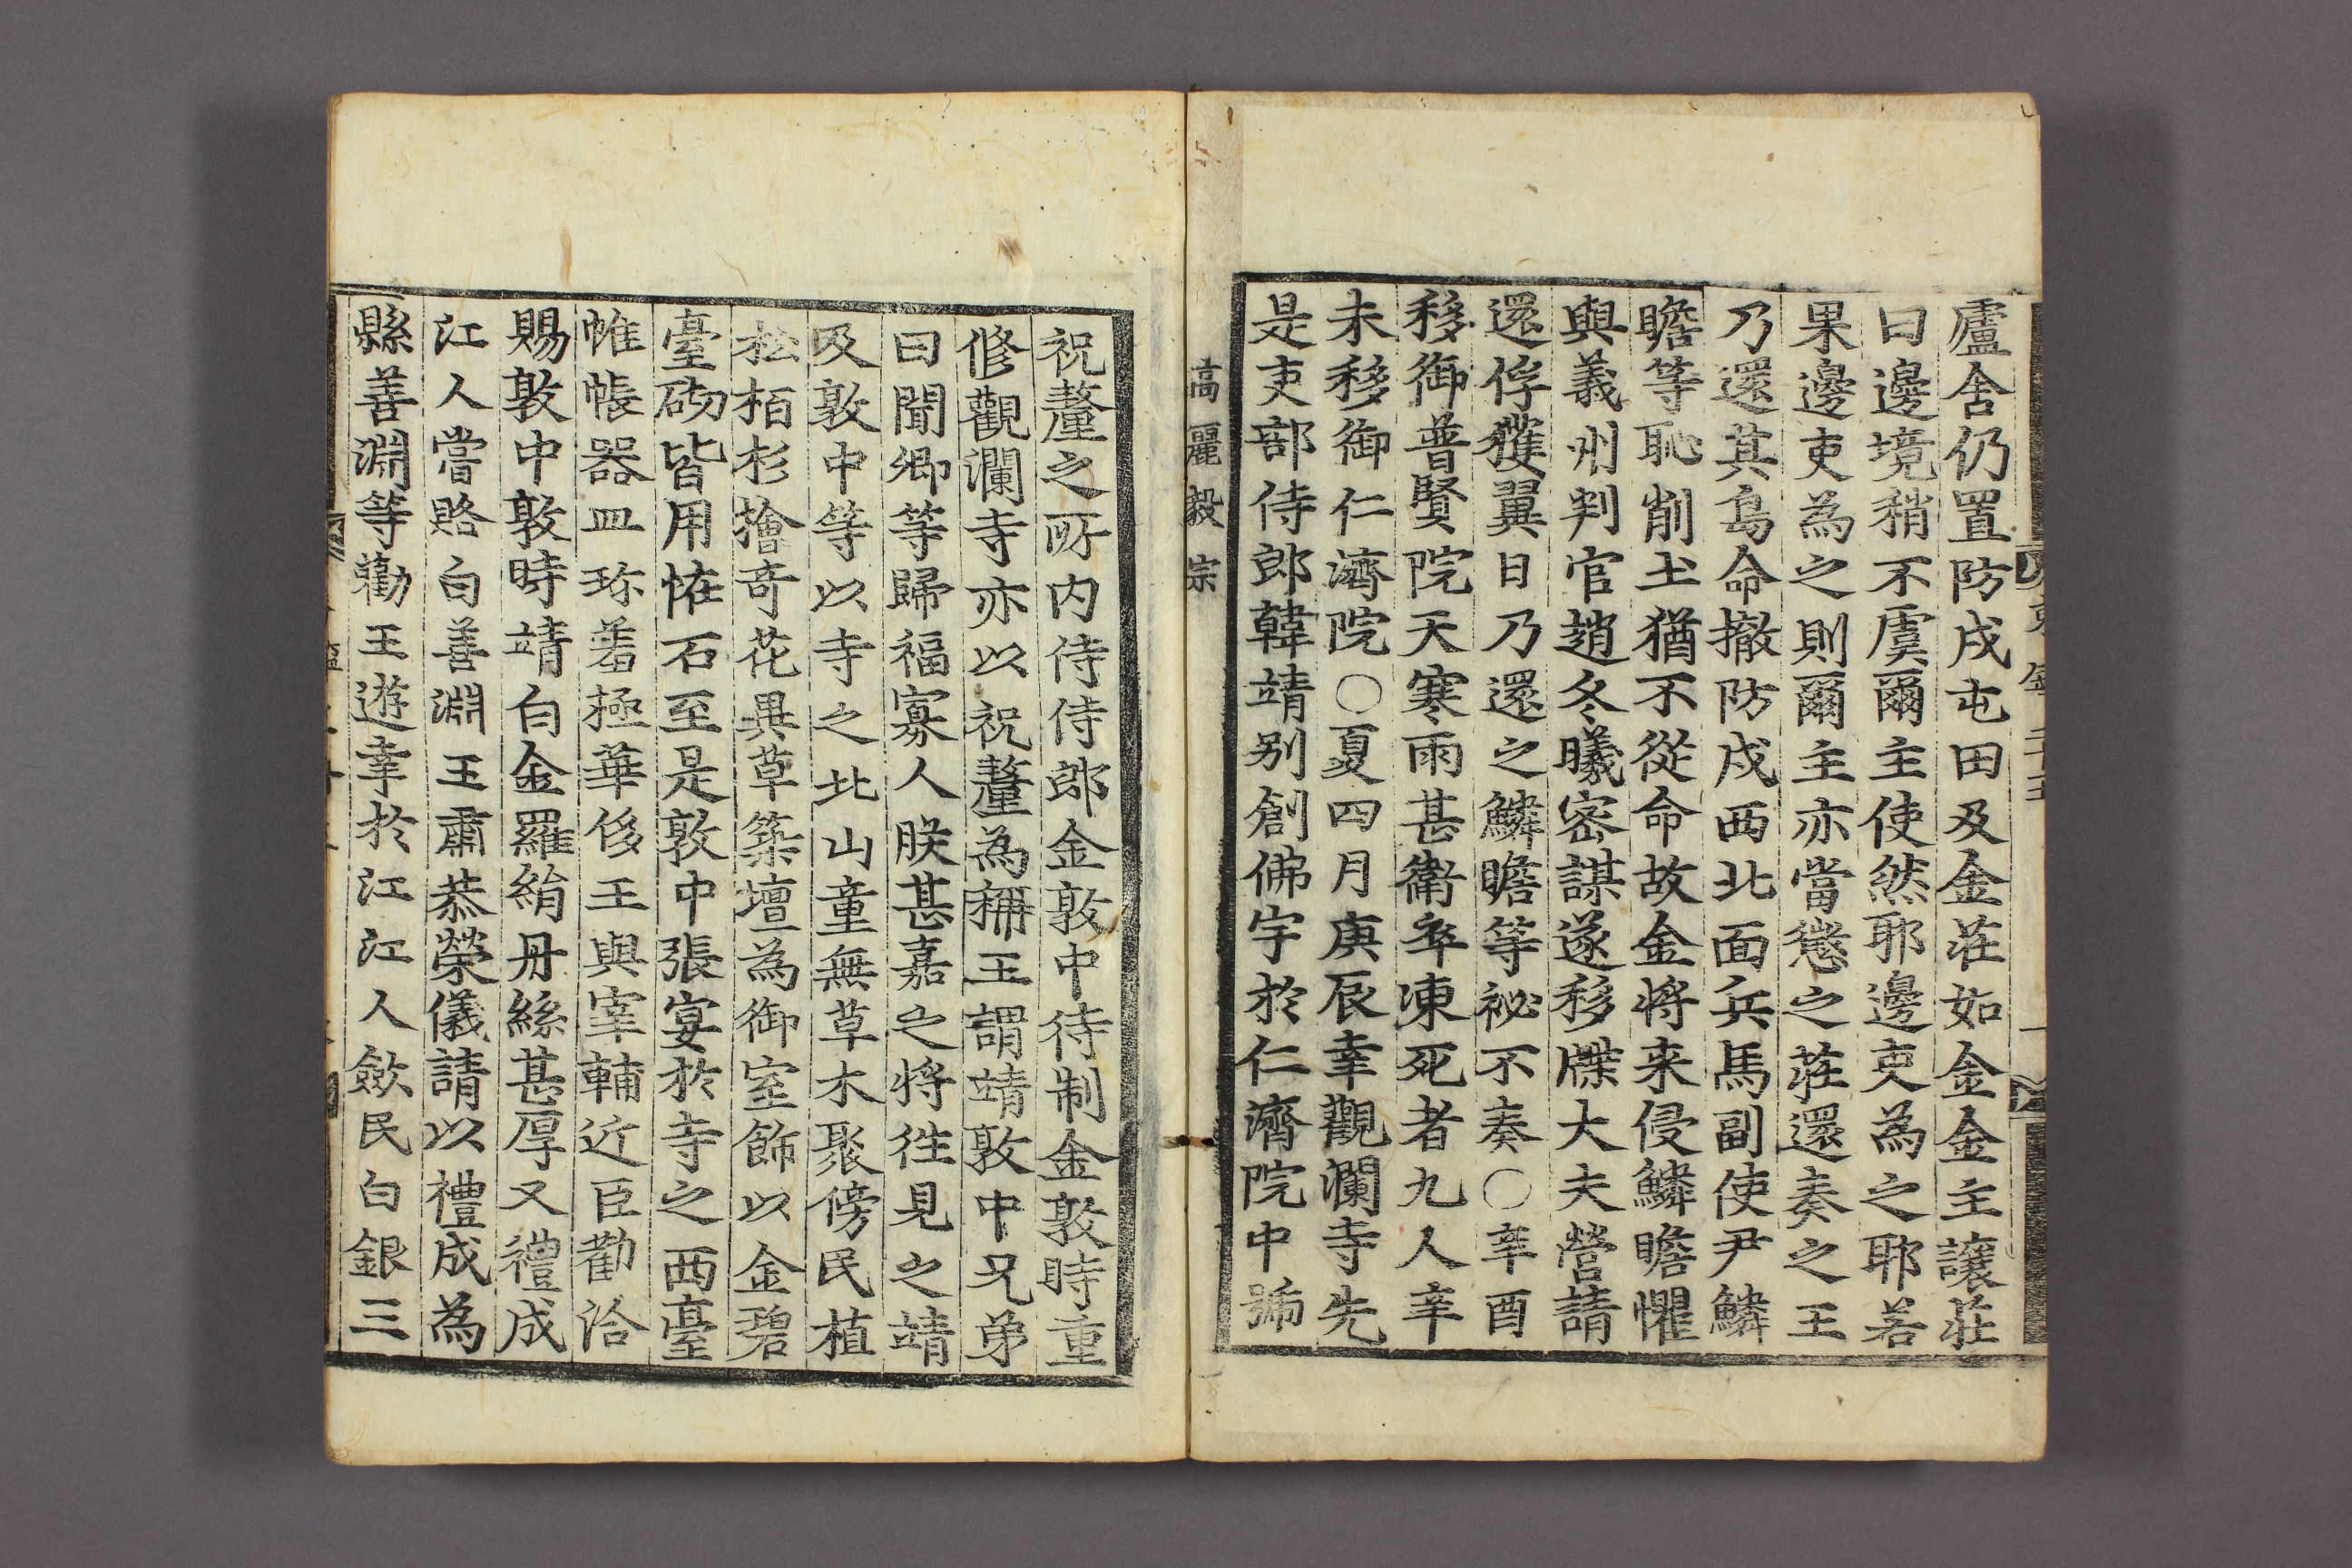 廬舍仍置防戍屯田及金莊如金金主讓莊
曰邊境稍不虞爾主使然耶邊吏為之耶若
果邊吏為之則爾主亦當懲之莊還奏之王
乃還其島命撤防戍西北面兵馬副使尹鱗
瞻等恥削土猶不從命故金將来侵鱗瞻懼
與義州判官趙冬曦密謀遂移牒大夫營請
還俘獲翼日乃還之鱗瞻等祕不奏○辛酉
移御普賢院天寒雨甚衛卒凍死者九人辛
未移御仁濟院○夏四月庚辰幸觀瀾寺先
是吏部侍郎韓靖別創佛宇於仁濟院中號
高麗毅宗
祝釐之所内侍侍郎金敦中待制金敦時重
修觀瀾寺亦以祝釐為稱王謂靖敦中兄弟
曰聞卿等歸福寡人朕甚嘉之將徃見之靖
及敦中等以寺之北山童無草木聚傍民植
松栢杉檜奇花異草築壇為御室飾以金碧
臺砌皆用恠石至是敦中張宴於寺之西臺
帷帳器皿珎羞極華侈王與宰輔近臣勸洽
賜敦中敦時靖白金羅絹丹絲甚厚又禮成
江人嘗賂白善淵王肅恭榮儀請以禮成為
縣善淵等勸王遊幸於江江人斂民白銀三